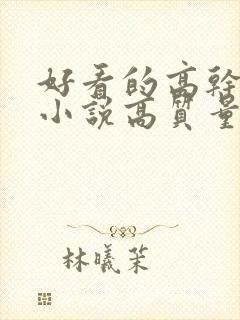 好看的高幹
小說高質量
林曦茉